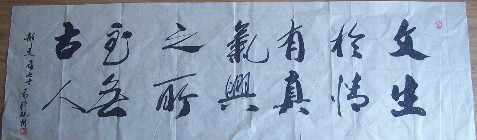 文生
於情
有真
氣興
之所
至無
古人